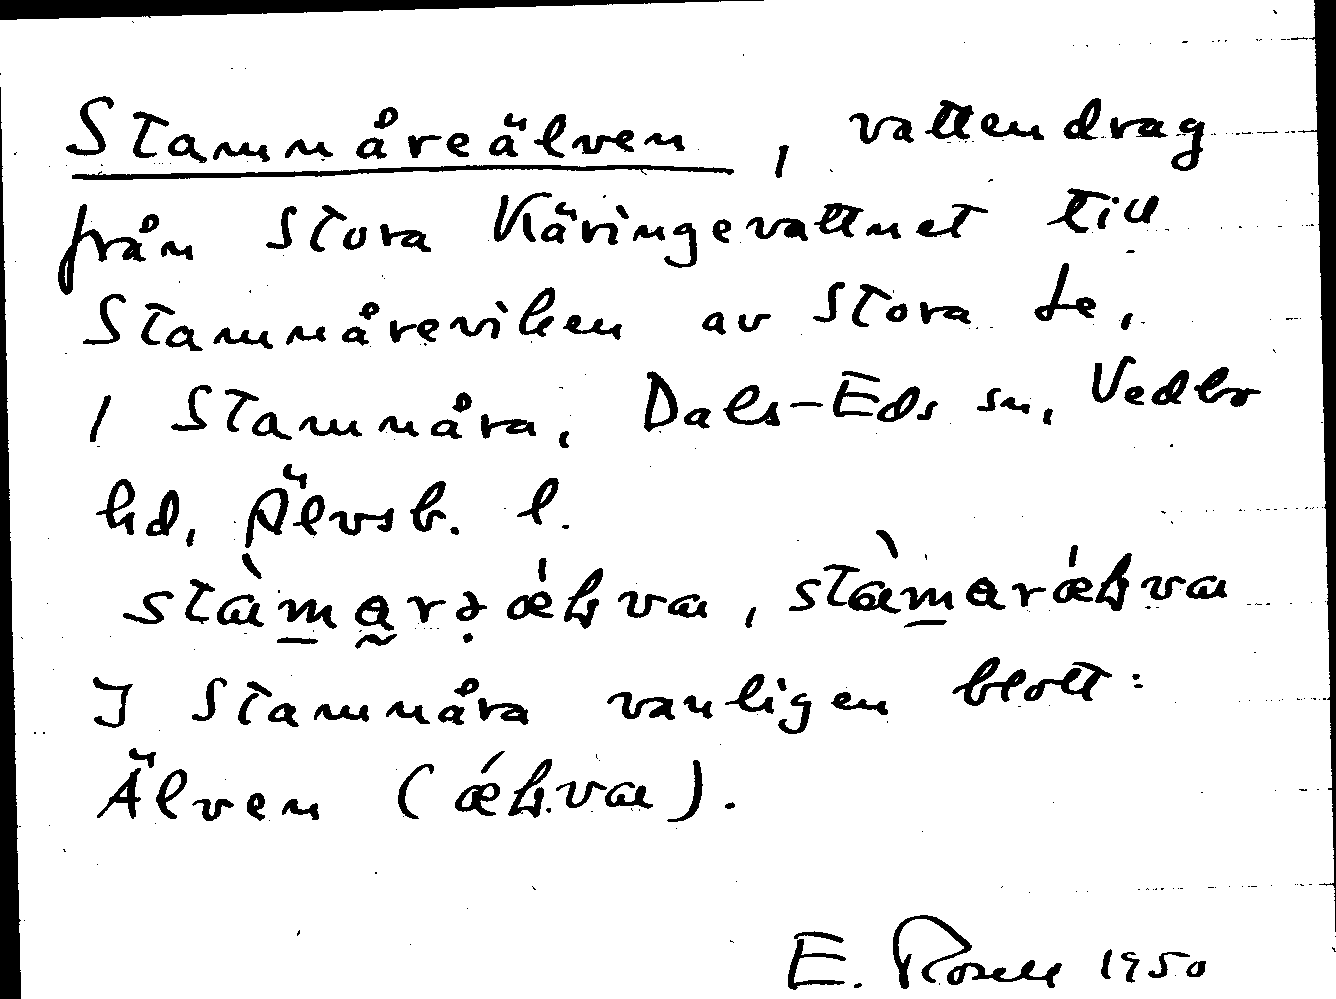 Stamnåreälven, vattendrag
från Stora Käringevattnet till
Stamnåreviken av Stora Le,
i Stamnåra, Dals-Eds sn, Vedbo
hd, Älvsb. l.
I Stamnåra vanligen blott:
Älven
E. Rosell 1950